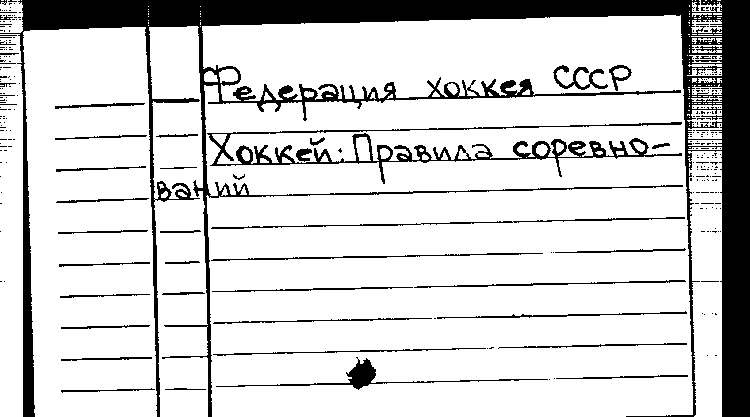 Федерация хоккея СССР
Хоккей: Правила соревно-
ваний